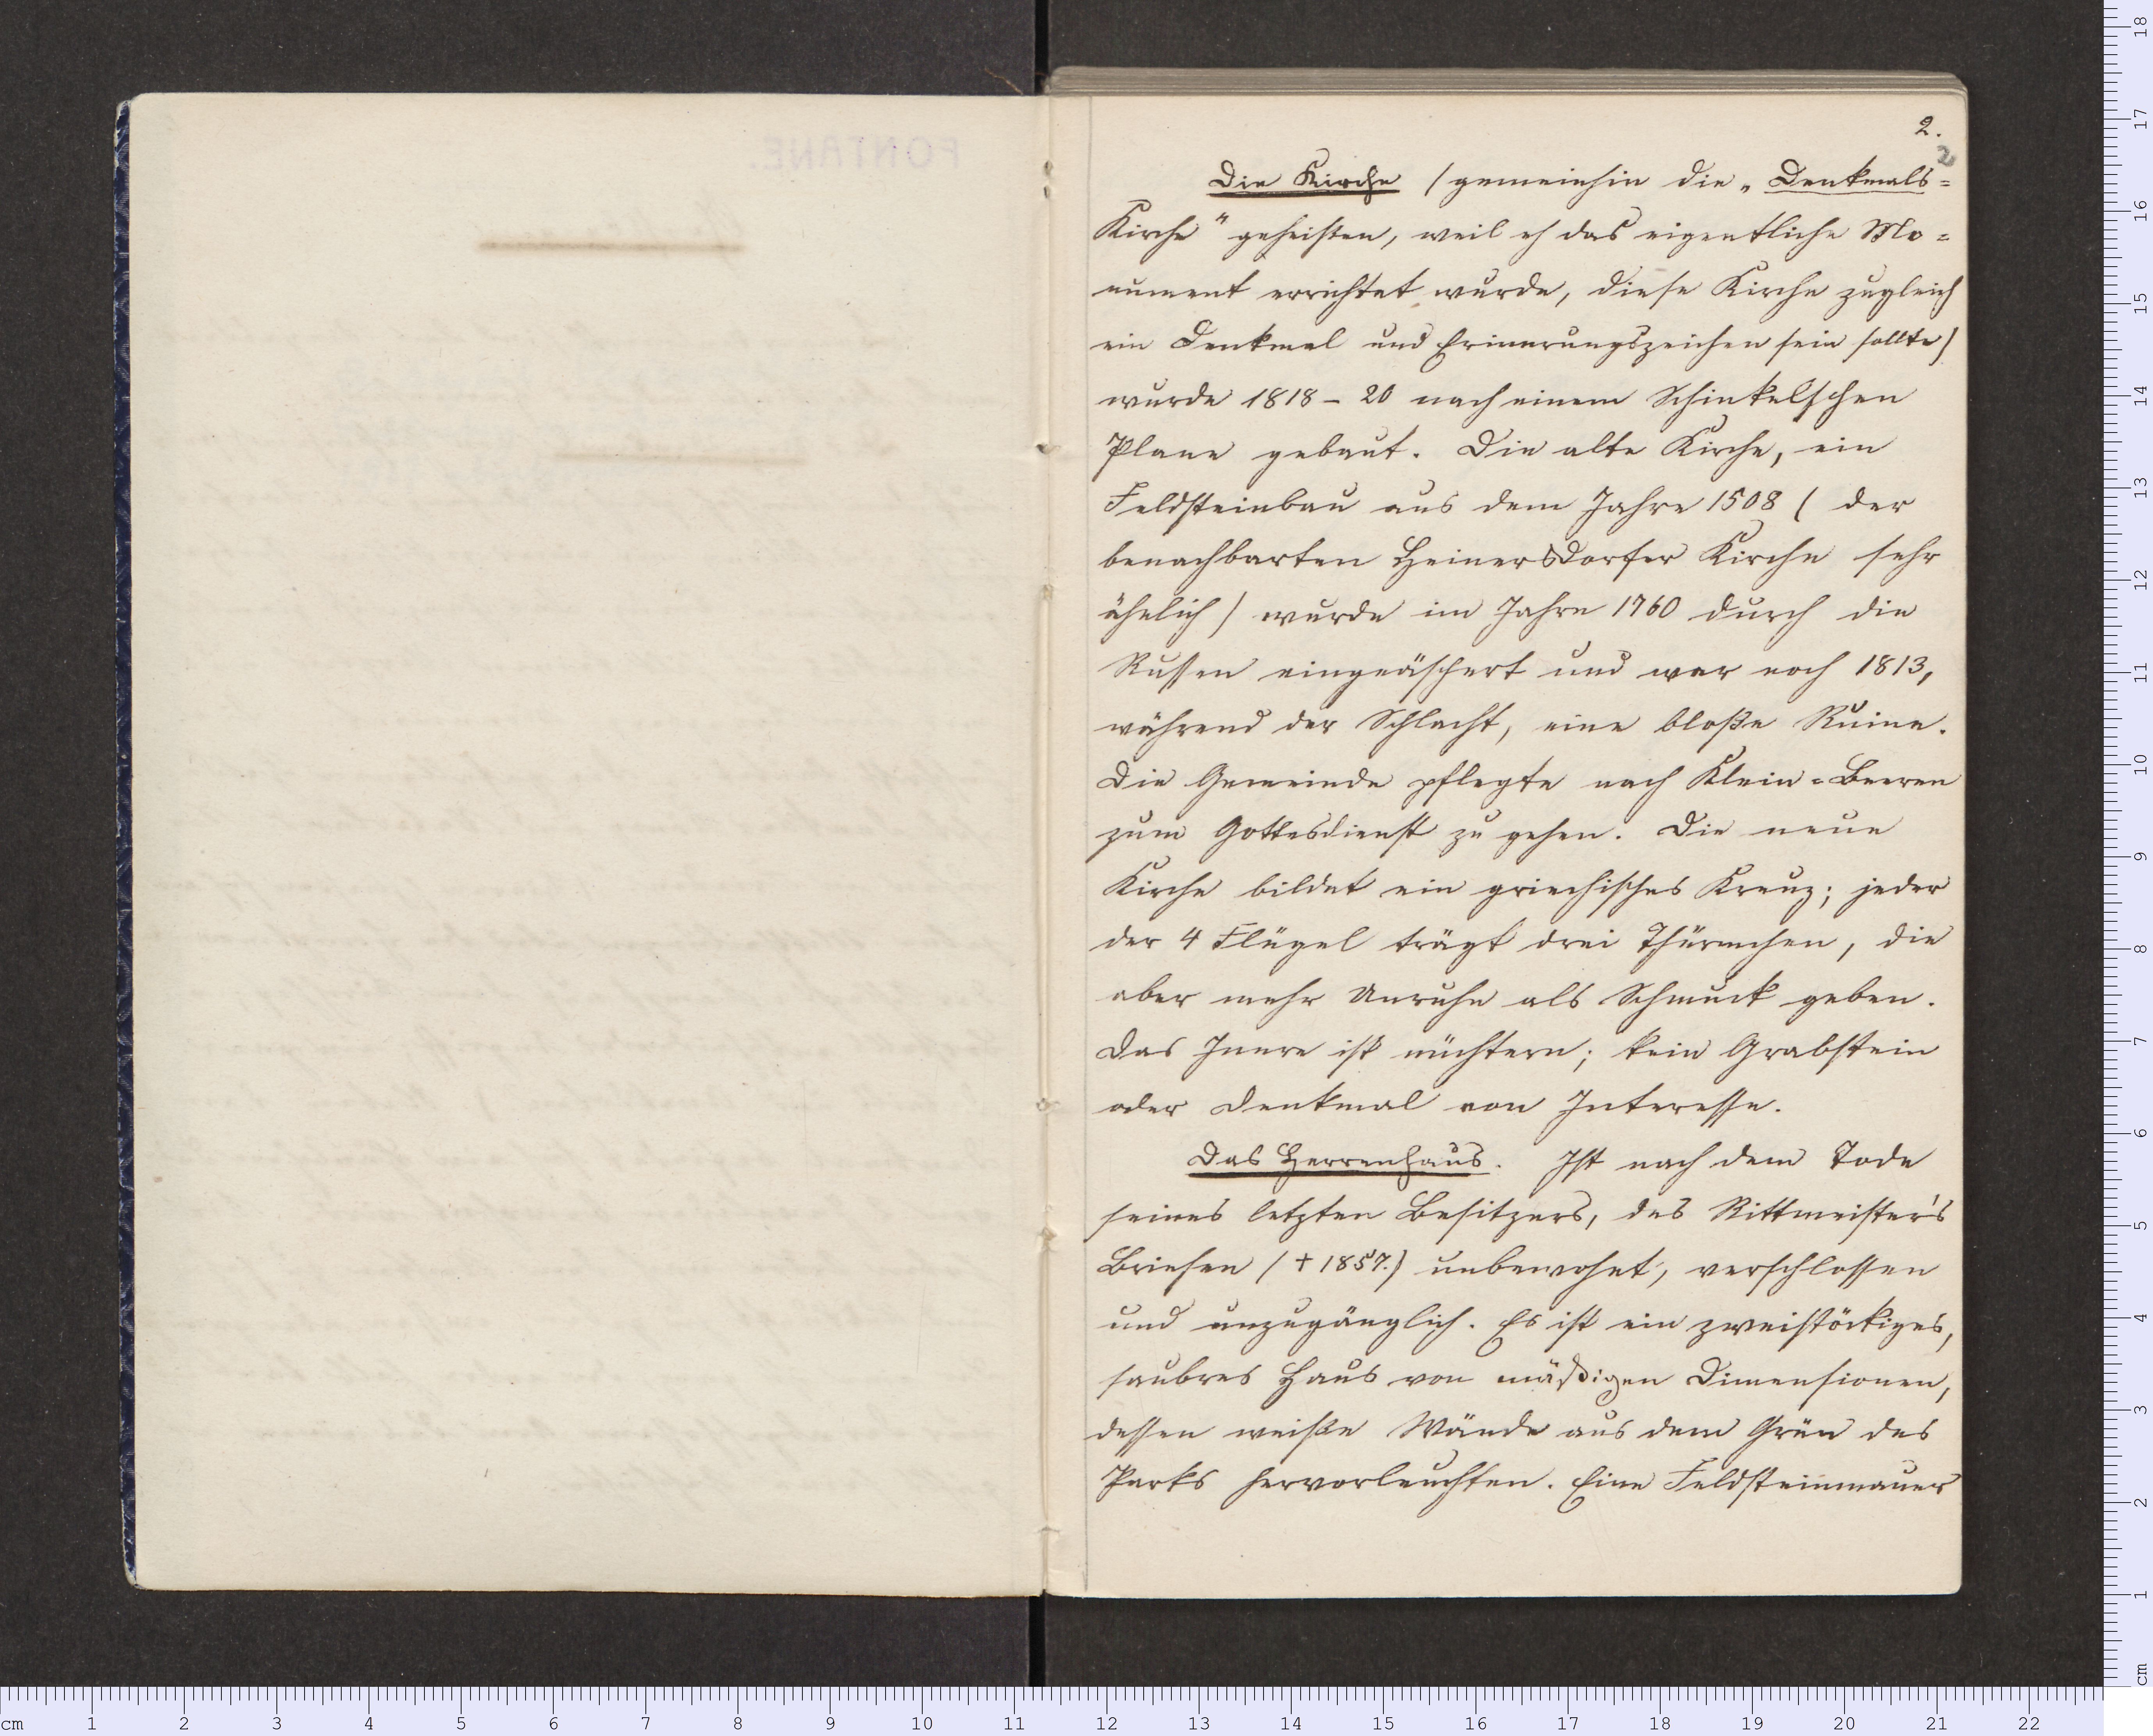 FONTANE.
2.
2
Die Kirche (gemeinhin die „Denkmals=
Kirche" geheißen, weil eh das eigentliche Mo=
nument errichtet wurde, diese Kirche zugleich
ein Denkmal und Erinnrungszeichen sein sollte)
wurde 1818–20 nach einem Schinkelschen
Plane gebaut. Die alte Kirche, ein
Feldsteinbau aus dem Jahre 1508 (der
benachbarten Heinersdorfer Kirche sehr
ähnlich) wurde im Jahre 1760 durch die
Russen eingeäschert und war noch 1813,
während der Schlacht, eine bloße Ruine.
Die Gemeinde pflegte nach Klein=Beeren
zum Gottesdienst zu gehen. Die neue
Kirche bildet ein griechisches Kreuz; jeder
der 4 Flügel trägt drei Thürmchen, die
aber mehr Unruhe als Schmuck geben.
Das Innre ist nüchtern; kein Grabstein
oder Denkmal von Interesse.
Das Herrenhaus. Ist nach dem Tode
seines letzten Besitzers, des Rittmeister's
Briesen († 1857.) unbewohnt, verschlossen
und unzugänglich. Es ist ein zweistöckiges,
saubres Haus von mäßigen Dimensionen,
dessen weiße Wände aus dem Grün des
Parks hervorleuchten. Eine Feldsteinmauer
cm 1 2 3 4 5 6 7 8 9 10 11 12 13 14 15 16 17 18 19 20 21 22
18
17
16
15
14
13
12
11
10
9
8
7
6
5
4
3
2
1
cm